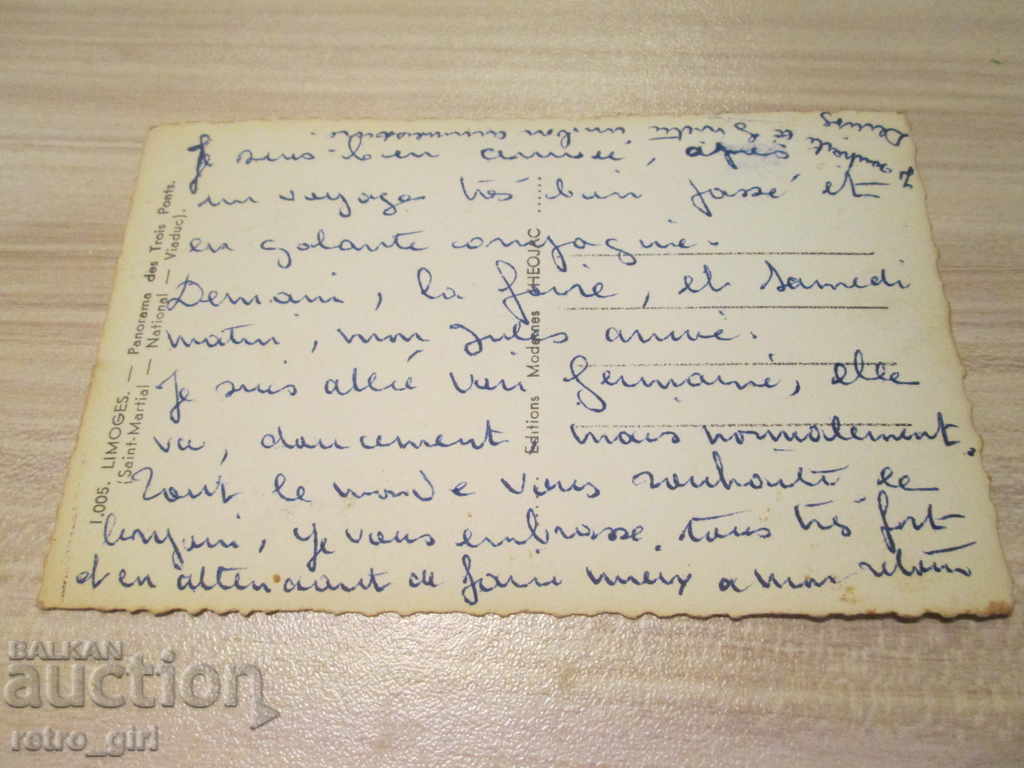 Je suis bien arrivé, après
un voyages très bien passé et
en galante compagnie.
Demain, la foire, et Samedi
matin, mon Jules arrive.
Je suis allée voir Germaine, elle
va, doucement, mais normalement.
Tout le monde vous souhaite le
bonjour, je vous embrasse tous très fort
d'en attendant de faire mieux a mon retour
Je souhaite a
un bon anniversaire.
Denise
1.005. LIMOGES. — Panorama des Trois Ponts.
(Saint-Martial — National — Viaduc).
Editions Modernes THEOJAC
BALKAN
auction
retro_girl